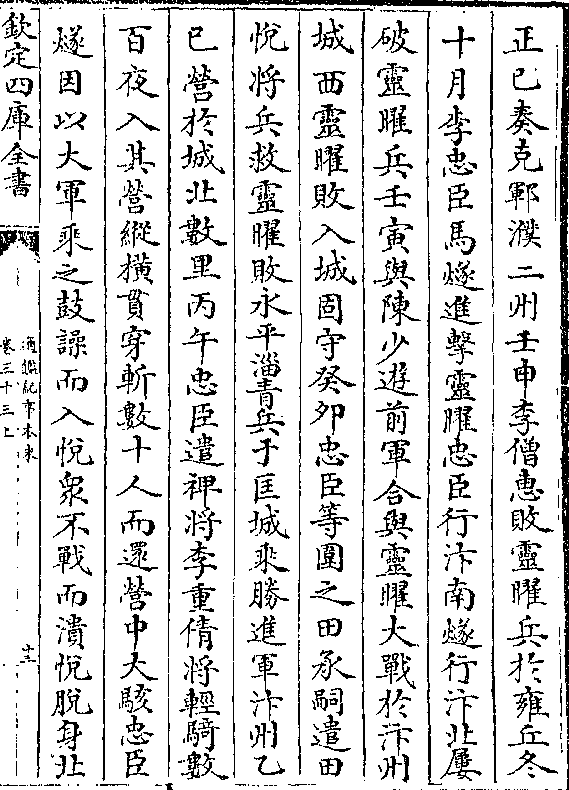 正已奏克鄆濮二州壬申李僧惠敗靈曜兵於雍丘冬
十月李忠臣馬燧進擊靈曜忠臣行汴南燧行汴北屢
破靈曜兵壬寅與陳少遊前軍合與靈曜大戰於汴州
城西靈曜敗入城固守癸卯忠臣等圍之田承嗣遣田
悅將兵救靈曜敗永平淄青兵于匡城乘勝進軍汴州乙
已營於城北數里丙午忠臣遣裨將李重倩將輕騎數
百夜入其營縱橫貫穿斬數十人而還營中大駭忠臣
燧因以大軍乘之鼓譟而入悅衆不戰而潰悅脫身北
欽定四庫全書
通鑑紀事本末
卷三十三上
十三